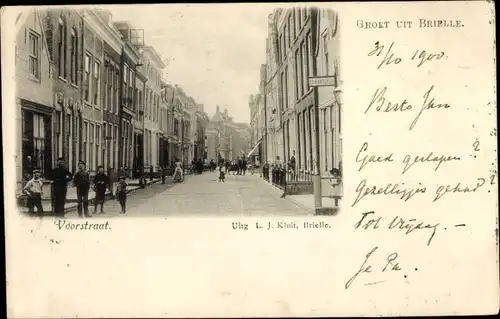 GROET UIT BRIELLE.
31/10 1900.
Beste Jan
Goed geslapen?
Gezellig gehad?
Tot vrijdag. —
Je Pa.
Voorstraat.
Uitg L. J. Kluit, Brielle.